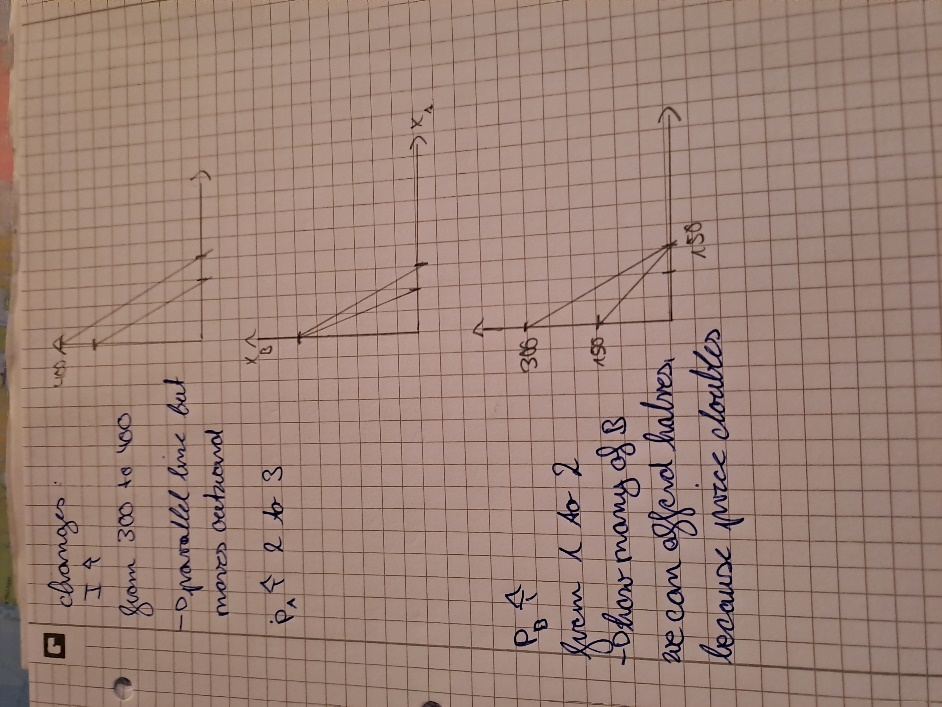 changes:
I ↑
from 300 to 400
→ parallel line but
moves outward
400
P₁ ↑ 2 to 3
X
B
X₁
P_B ↑
from 1 to 2
→ how many of B
we can afford halves,
because price doubles
300
150
150